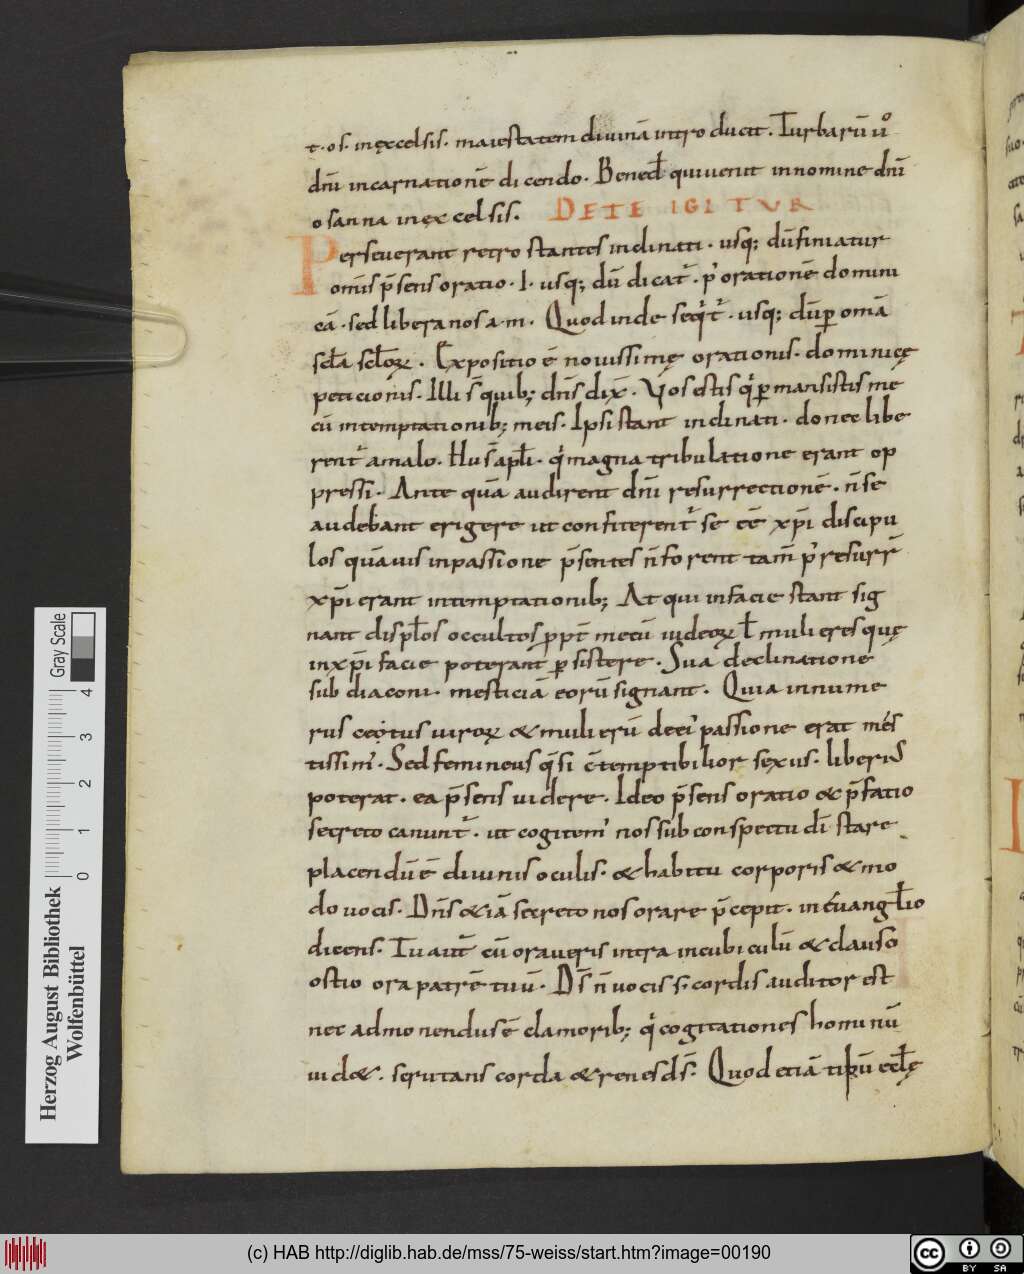 t · os · in ęxcelsis · maiestatem diuinā introducit . Turbarū ū
dnī incarnationē dicendo · Bened̄ qui uenit in nomine dn̄i
osanna in ęxcelsis.
DE TE IGITUR
Perseuerant retro stantes inclinati · usq; dū finiatur
omīs p̄sens oratio · I · usq; dū dicat̄ · p̄ orationē domini
cā · sed libera nos a · m · Quod inde seq̄t̄ · usq; dū p̱ omā
scl̄a scl̄oꝝ · Expositio ē nouissimę orationis · dominicę
peticionis · Illi s̄ quib; dn̄s dix̄ · Vos estis q̄ p̱mansistis me
cū in temptationib; meis · Ipsi stant inclinati · donec libe
rent̄ a malo · Hi s̄ apl̄i · q̄ magna tribulatione erant op
pressi · Ante quā audirent dn̄i resurrectionē · n̄ se
audebant erigere ut confiterent̄ se eē xp̄i discipu
los quāuis in passione p̄sentes n̄ forent tam̄ p̄ resurr̄
xp̄i erant in temptationib; At qui in facie stant sig
nant discpl̄os occultos ꝓpt̄ metū iudeoꝝ l̄ mulieres quę
in xp̄i facie poterant p̱sistere · Sua declinatione
subdiaconi · mesticiā eorū signant · Quia innume
rus cęotus uiroꝝ & mulierū de ei᾽ passione erat męs
tissim᾽ · Sed femineus q̄si c̄temptibilior sexus · liberi᾽
poterat · ea p̄sens uidere · Ideo p̄sens oratio & p̄fatio
secreto canunt̄ · ut cogitem᾽ nos sub conspectu dī stare
placendū ē diuinis oculis · & habitu corporis & mo
do uocis · Dn̄s &iā secreto nos orare p̄cepit · in euangl̄io
dicens · Tu aut̄ cū oraueris intra in cubiculū & clauso
ostio ora patrē tuū · Ds̄ n̄ uocis s; cordis auditor est
nec admonendus ē clamorib; q̄ cogitationes hominū
uid& · scrutans corda & renes ds̄ · Quod etiā tipū eccl̄ę
Herzog August Bibliothek
Wolfenbüttel
0 1 2 3 4 Gray Scale
(c) HAB http://diglib.hab.de/mss/75-weiss/start.htm?image=00190
cc BY SA